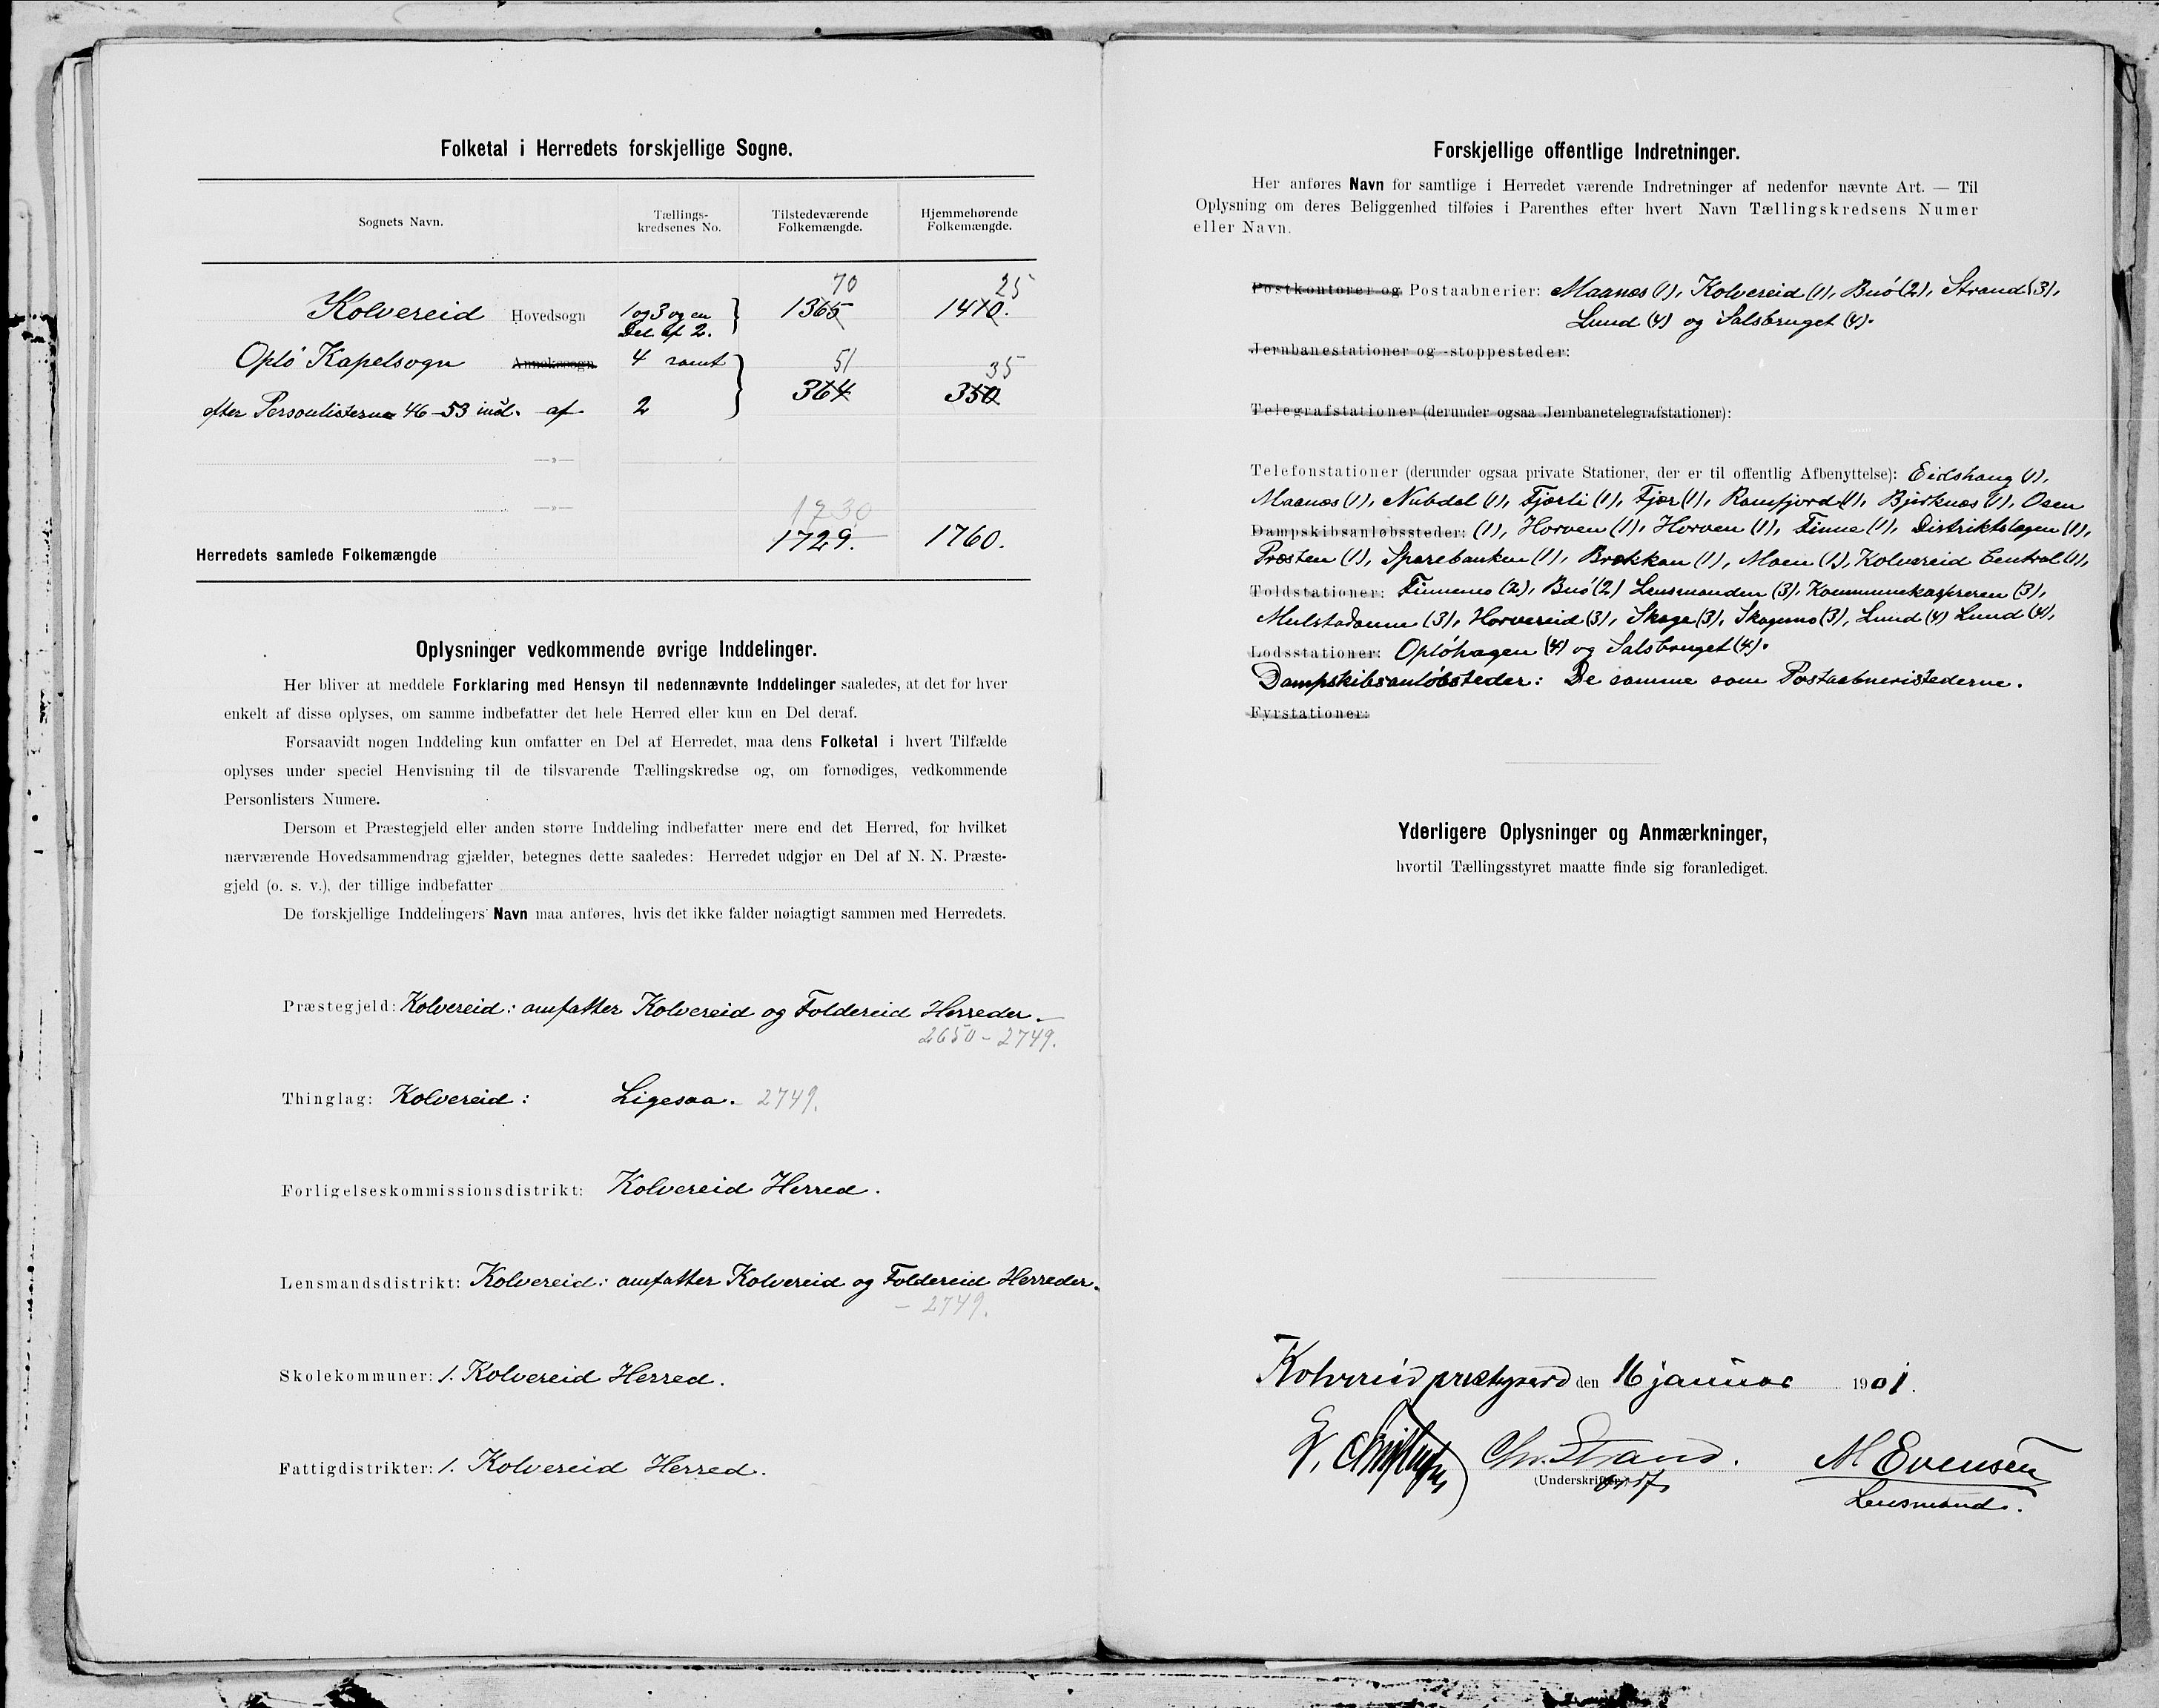 Folketal i Herredets forskjellige Sogne.
Sognets Navn.
Tællings-
kredsenes No.
Tilstedeværende
Folkemængde.
Hjemmehørende
Folkemængde.
70 25
Kolvereid Hovedsogn 1 og 3 og en 1365 1410.
Del af 2.
Oplö Kapelsogn Annekssogn 4 samt 51 35
364 350
efter Personlisterne 46-53 incl. af 2
—»—
—»—
1730
Herredets samlede Folkemængde 1729. 1760.
Oplysninger vedkommende øvrige Inddelinger.
Her bliver at meddele Forklaring med Hensyn til nedennævnte Inddelinger saaledes, at det for hver
enkelt af disse oplyses, om samme indbefatter det hele Herred eller kun en Del deraf.
Forsaavidt nogen Inddeling kun omfatter en Del af Herredet, maa dens Folketal i hvert Tilfælde
oplyses under speciel Henvisning til de tilsvarende Tællingskredse og, om fornødiges, vedkommende
Personlisters Numere.
Dersom et Præstegjeld eller anden større Inddeling indbefatter mere end det Herred, for hvilket
nærværende Hovedsammendrag gjælder, betegnes dette saaledes: Herredet udgjør en Del af N. N. Præste-
gjeld (o. s. v.), der tillige indbefatter
De forskjellige Inddelingers Navn maa anføres, hvis det ikke falder nøiagtigt sammen med Herredets.
Præstegjeld: Kolvereid: omfatter Kolvereid og Foldereid Herreder.
2650 - 2749.
Thinglag: Kolvereid: Ligesaa. 2749.
Forligelseskommissionsdistrikt: Kolvereid Herred.
Lensmandsdistrikt: Kolvereid: omfatter Kolvereid og Foldereid Herreder.
- 2749.
Skolekommuner: 1. Kolvereid Herred.
Fattigdistrikter: 1. Kolvereid Herred.
Forskjellige offentlige Indretninger.
Her anføres Navn for samtlige i Herredet værende Indretninger af nedenfor nævnte Art. — Til
Oplysning om deres Beliggenhed tilføies i Parenthes efter hvert Navn Tællingskredsens Numer
eller Navn.
Postkontorer og Postaabnerier: Maanes (1), Kolvereid (1), Buö (2), Strand (3),
Lund (4) og Salsbruget (4).
Jernbanestationer og -stoppesteder:
Telegrafstationer (derunder ogsaa Jernbanetelegrafstationer):
Telefonstationer (derunder ogsaa private Stationer, der er til offentlig Afbenyttelse): Eidshaug (1),
Maanes (1), Nubdal (1), Fjærli (1), Fjær (1), Ramfjord (1), Björknes (1), Osen
Dampskibsanløbssteder: (1), Horven (1), Horven (1), Finne (1), Distriktslægen (1),
Præsten (1), Sparebanken (1), Brækkan (1), Moen (1), Kolvereid Central (1),
Toldstationer: Finnemo (2), Buö (2) Lensmanden (3), Kommunekassereren (3),
Mulstadaune (3), Horvereid (3), Skage (3), Skagemo (3), Lund (4) Lund (4),
Lodsstationer: Oplöhagen (4) og Salsbruget (4).
Dampskibsanlöbsteder: De samme som Postaabneristederne.
Fyrstationer:
Yderligere Oplysninger og Anmærkninger,
hvortil Tællingsstyret maatte finde sig foranlediget.
Kolvereid prestegaard den 16 januar 1901.
Chr. Strand. M Evensen
(Underskrifter)
Lensmand.